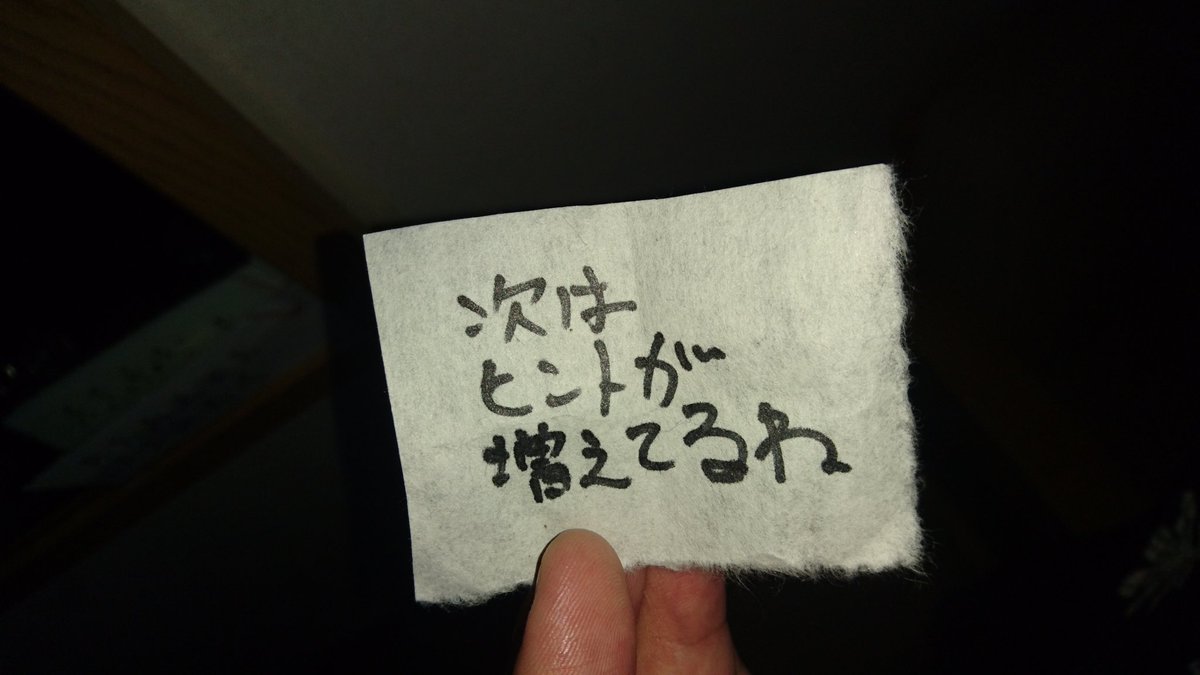 次は
ヒントが
増えてるね